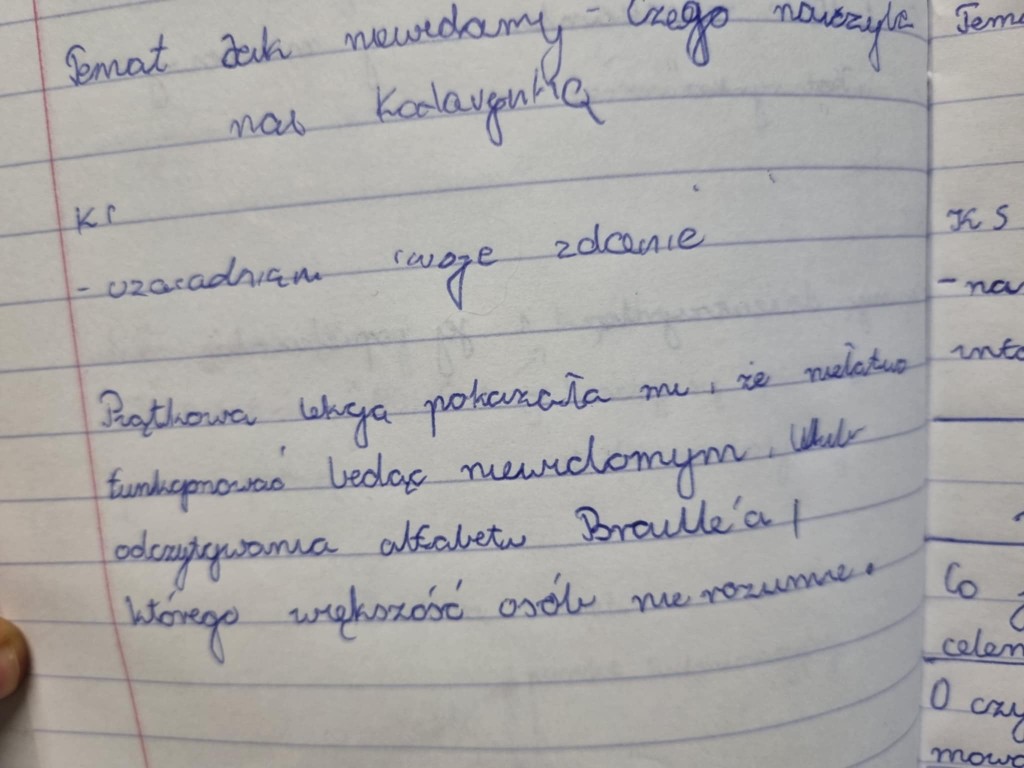 Temat Jak niewidomy - Czego nauczyła
nas
KS
- uzasadniam swoje zdanie
Piątkowa lekcja pokazała mi, że niełatwo
funkcjonować będąc niewidomym.
odczytywania alfabetu Braille'a /
którego większość osób nie rozumie.
Tema
KS
- na
Co
celem
O czy
mowa